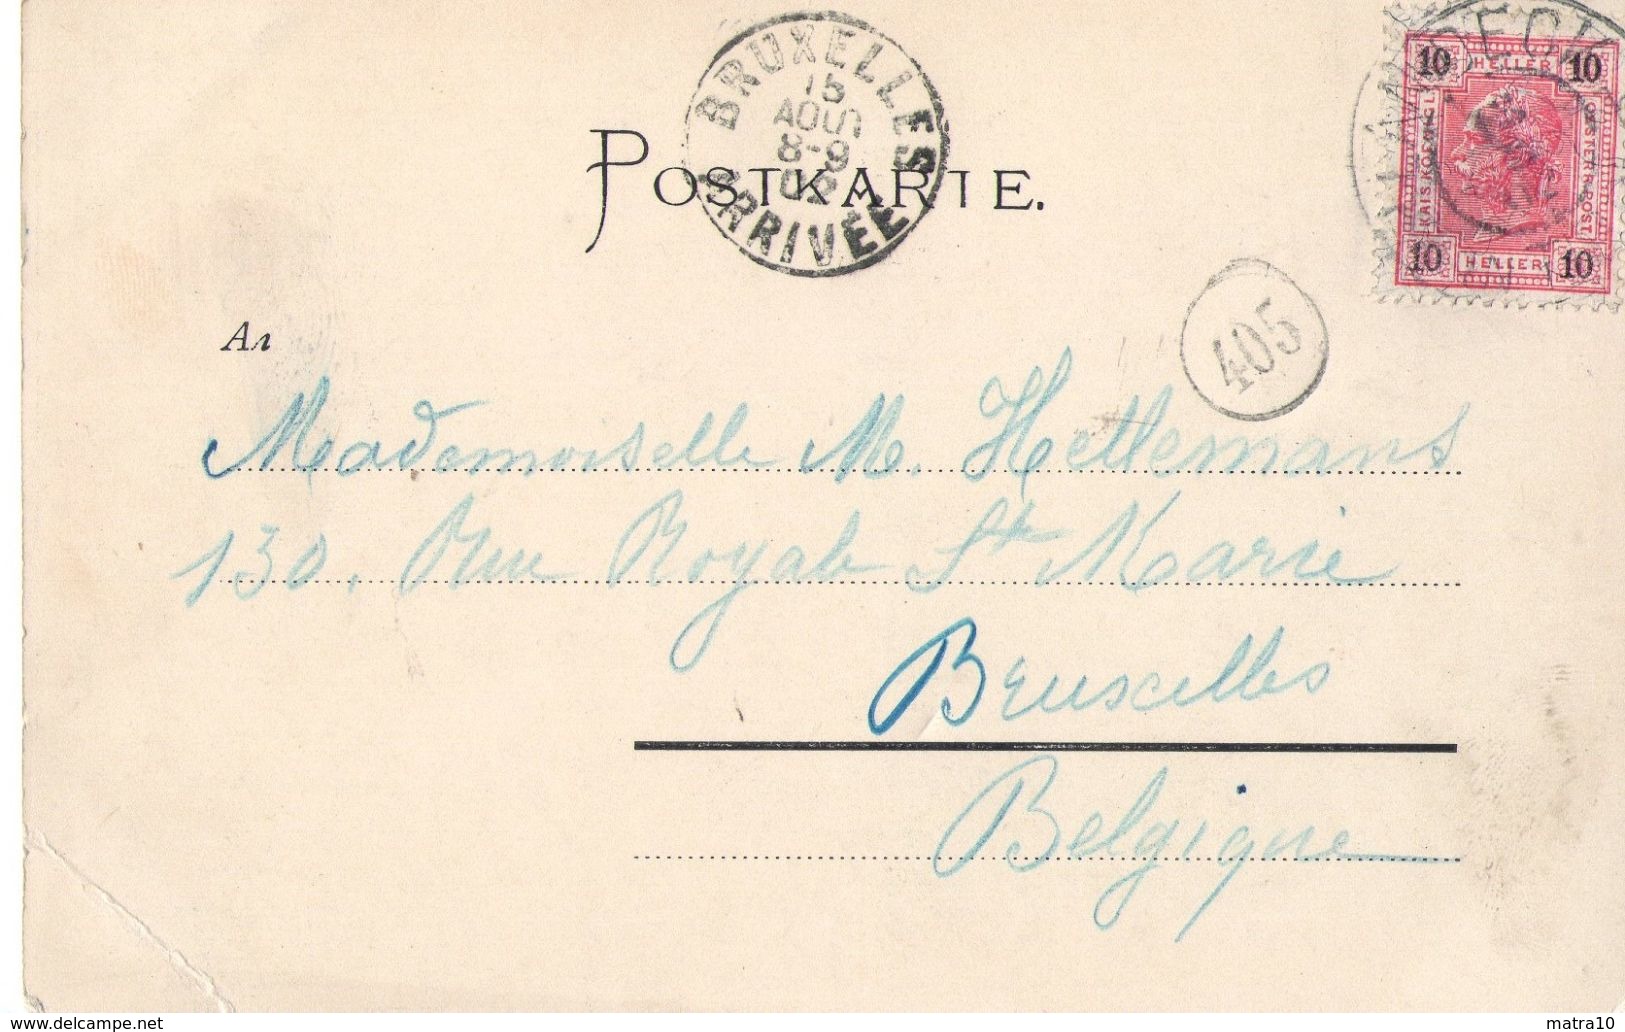 BRUXELLES
15
AOUS
8-9
02
ARRIVÉE
POSTKARTE.
10 HELLER 10
KAIS. KOENIGL.
OESTERR. POST
10 HELLER 10
405
An
Mademoiselle M. Hellemans
130, Rue Royale Ste Marie
Bruxelles
Belgique
www.delcampe.net
matra10